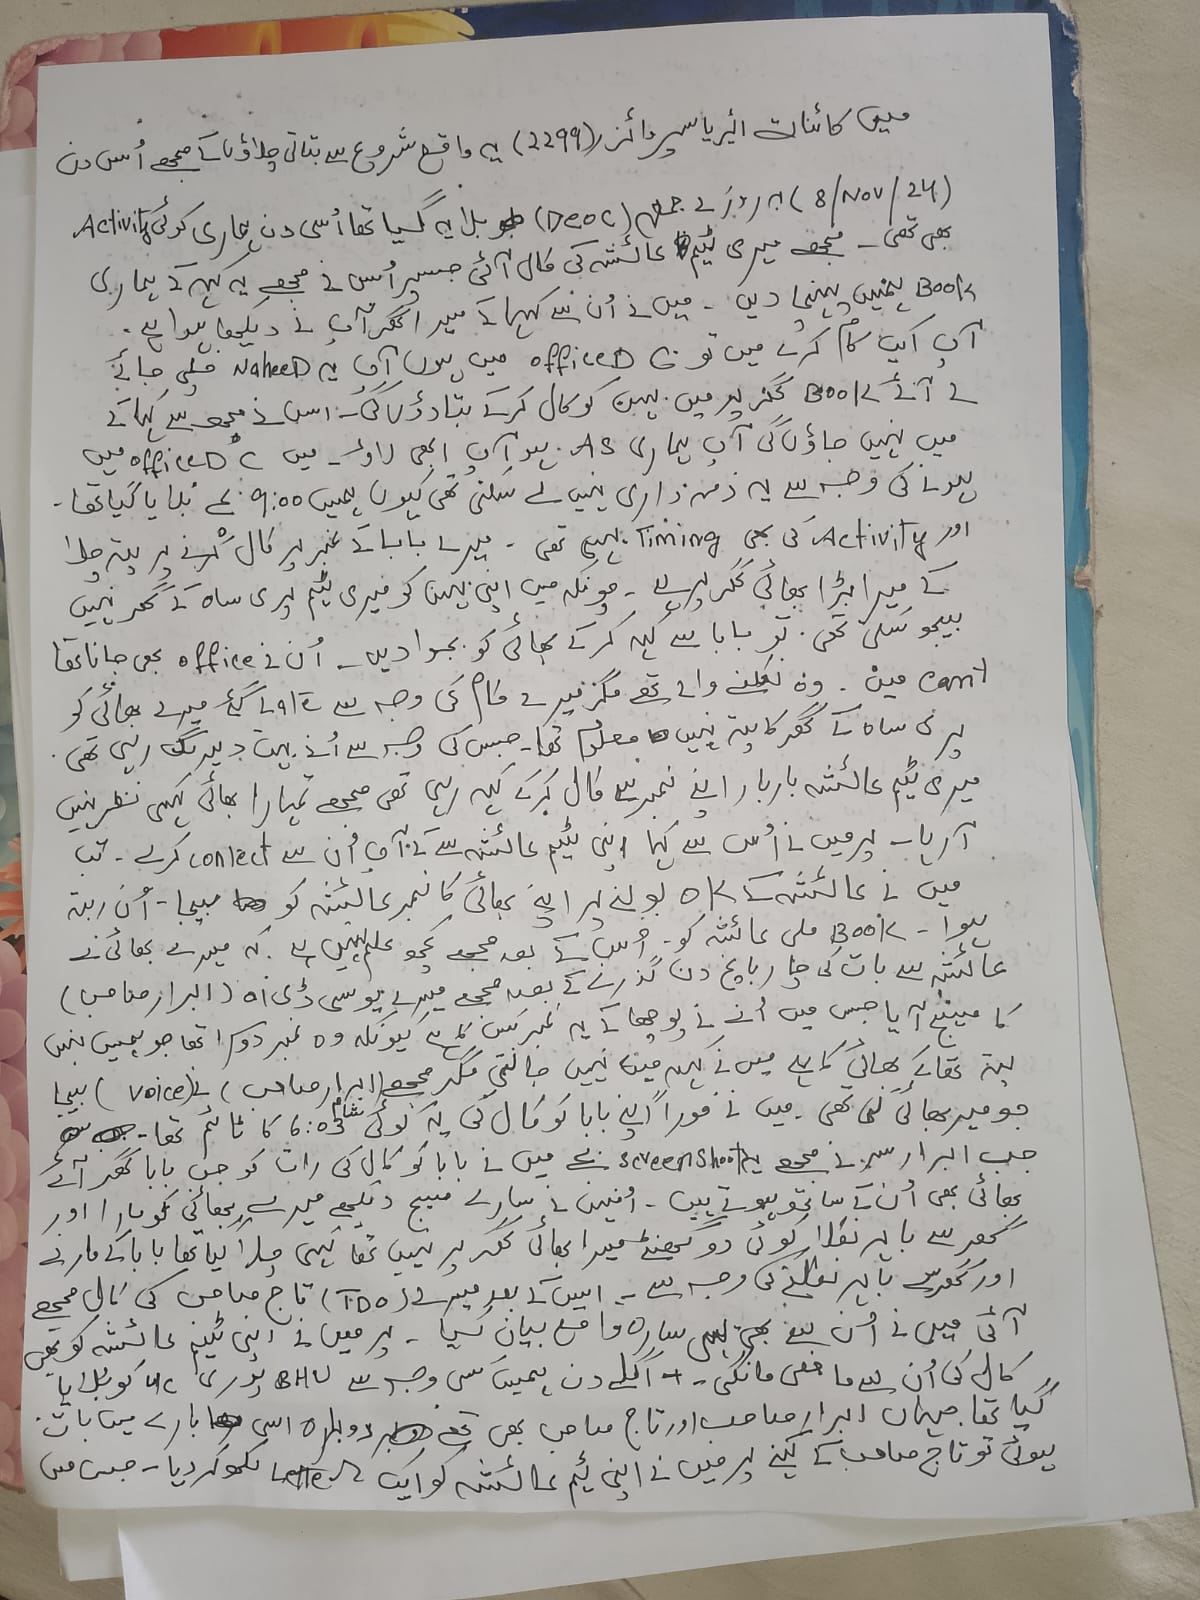 میں کائنات ائیریا سپروائزر (2299) یہ واقع شروع سے بتاتی چلاؤں کے مجھے اُس دن
(8/Nov/24) بہ روز کے جمعہ (DEOC) بلایہ گیا تھا اُسی دن ہماری کوئی Activity
بھی تھی۔ مجھے میری ٹیم عائشہ کی کال آئی جسپر اُس نے مجھے یہ کہہ کے ہماری
Book ہمیں پہنچا دیں۔ میں نے اُن سے کہا کے میرا گھر آپ نے دیکھا ہوا ہے۔
آپ ایک کام کرے میں تو office DC میں ہوں آپ یہ Naheed چلی جائے
لے آئے Book گھر پر میں بہن کو کال کرکے بتا دؤں گی۔ اس نے مجھ سے کہا کے
میں نہیں جاؤں گی آپ ہماری AS ہو آپ ابھی لاوٴ۔ میں office DC میں
ہونے کی وجہ سے یہ ذمہ داری نہیں لے سکتی تھی کیوں ہمیں 9:00 بجے بُلایا گیا تھا۔
اور Activity کی بھی Timing یہی تھی۔ میرے بابا کے نمبر پر کال کرنے پر پتہ چلا
کے میرا بڑا بھائی گھر پر ہے۔ چونکہ میں اپنی بہن کو میری ٹیم پری ساہ کے گھر نہیں
بیجھ سکتی تھی۔ تو بابا سے کہہ کر کے بھائی کو بجوا دیں۔ اُن نے office بھی جانا تھا
cantt میں۔ وہ نکلنے والے تھے مگر میرے کام کی وجہ سے late گئے میرے بھائی کو
پری ساہ کے گھر کا پتہ نہیں معلوم تھا۔ جس کی وجہ سے اُنے بہت دیر لگ رہی تھی۔
میری ٹیم عائشہ بار بار اپنے نمبر سے کال کرکے کہہ رہی تھی مجھے تمہارا بھائی کہی نظر نہیں
آرہا۔ پر میں نے اُس سے کہا اپنی ٹیم عائشہ سے کے آپ اُن سے contect کرلے۔ تب
میں نے عائشہ کے ok بولنے پر اپنے بھائی کا نمبر عائشہ کو بیجا۔ اُن ربتہ
ہوا۔ Book ملی عائشہ کو۔ اُس کے بعد مجھے کچھ علم نہیں ہے۔ کہ میرے بھائی نے
عائشہ سے بات کی چار پانچ دن گذرنے کے بعد مجھے میرے یو سی ڈی او (ابرار صاحب)
کا میسج آیا جس میں اُنے نے پوچھا کے یہ نمبر کس کا ہے کیونکہ وہ نمبر دوسرا تھا جو ہمیں نہیں
پتہ تھا کے بھائی کا ہے میں نے کہہ میں نہیں جانتی مگر مجھے (ابرار صاحب) نے (voice) بیجا
جو میر بھائی کی تھی۔ میں نے فوراً اپنے بابا کو کال کی یہ کوئی 6:03 شام کا ٹائم تھا۔
جب ابرار سر نے مجھے screenshoot بیجے میں نے بابا کو کال کی رات کو جب بابا گھر آئے
بھائی بھی اُن کے ساتھ ہوتے ہیں۔ اُنہیں نے سارے میسج دیکھے میرے بھائی کو مارا اور
گھر سے باہر نکلا کوئی دو گھنٹے میرا بھائی گھر پر نہیں تھا کہی چلا گیا تھا بابا کے مارنے
اور گھر سے باہر نکلنے کی وجہ سے۔ اس کے بعد میرے (TDO) تاج صاحب کی کال مجھے
آئی میں نے اُن سے بھی سارہ واقع بیان کیا۔ پر میں نے اپنی ٹیم عائشہ کو بھی
کال کی اُن سے مافی مانگی۔ اگلے دن ہمیں کسی وجہ سے BHU پوری UC کو بُلایا
گیا تھا جہاں ابرار صاحب اور تاج صاحب بھی تھے دوبارہ اسی بارے میں بات
ہوئی تو تاج صاحب کے کہنے پر میں نے اپنی ٹیم عائشہ کو ایک Letter لکھ کر دیا۔ جس میں